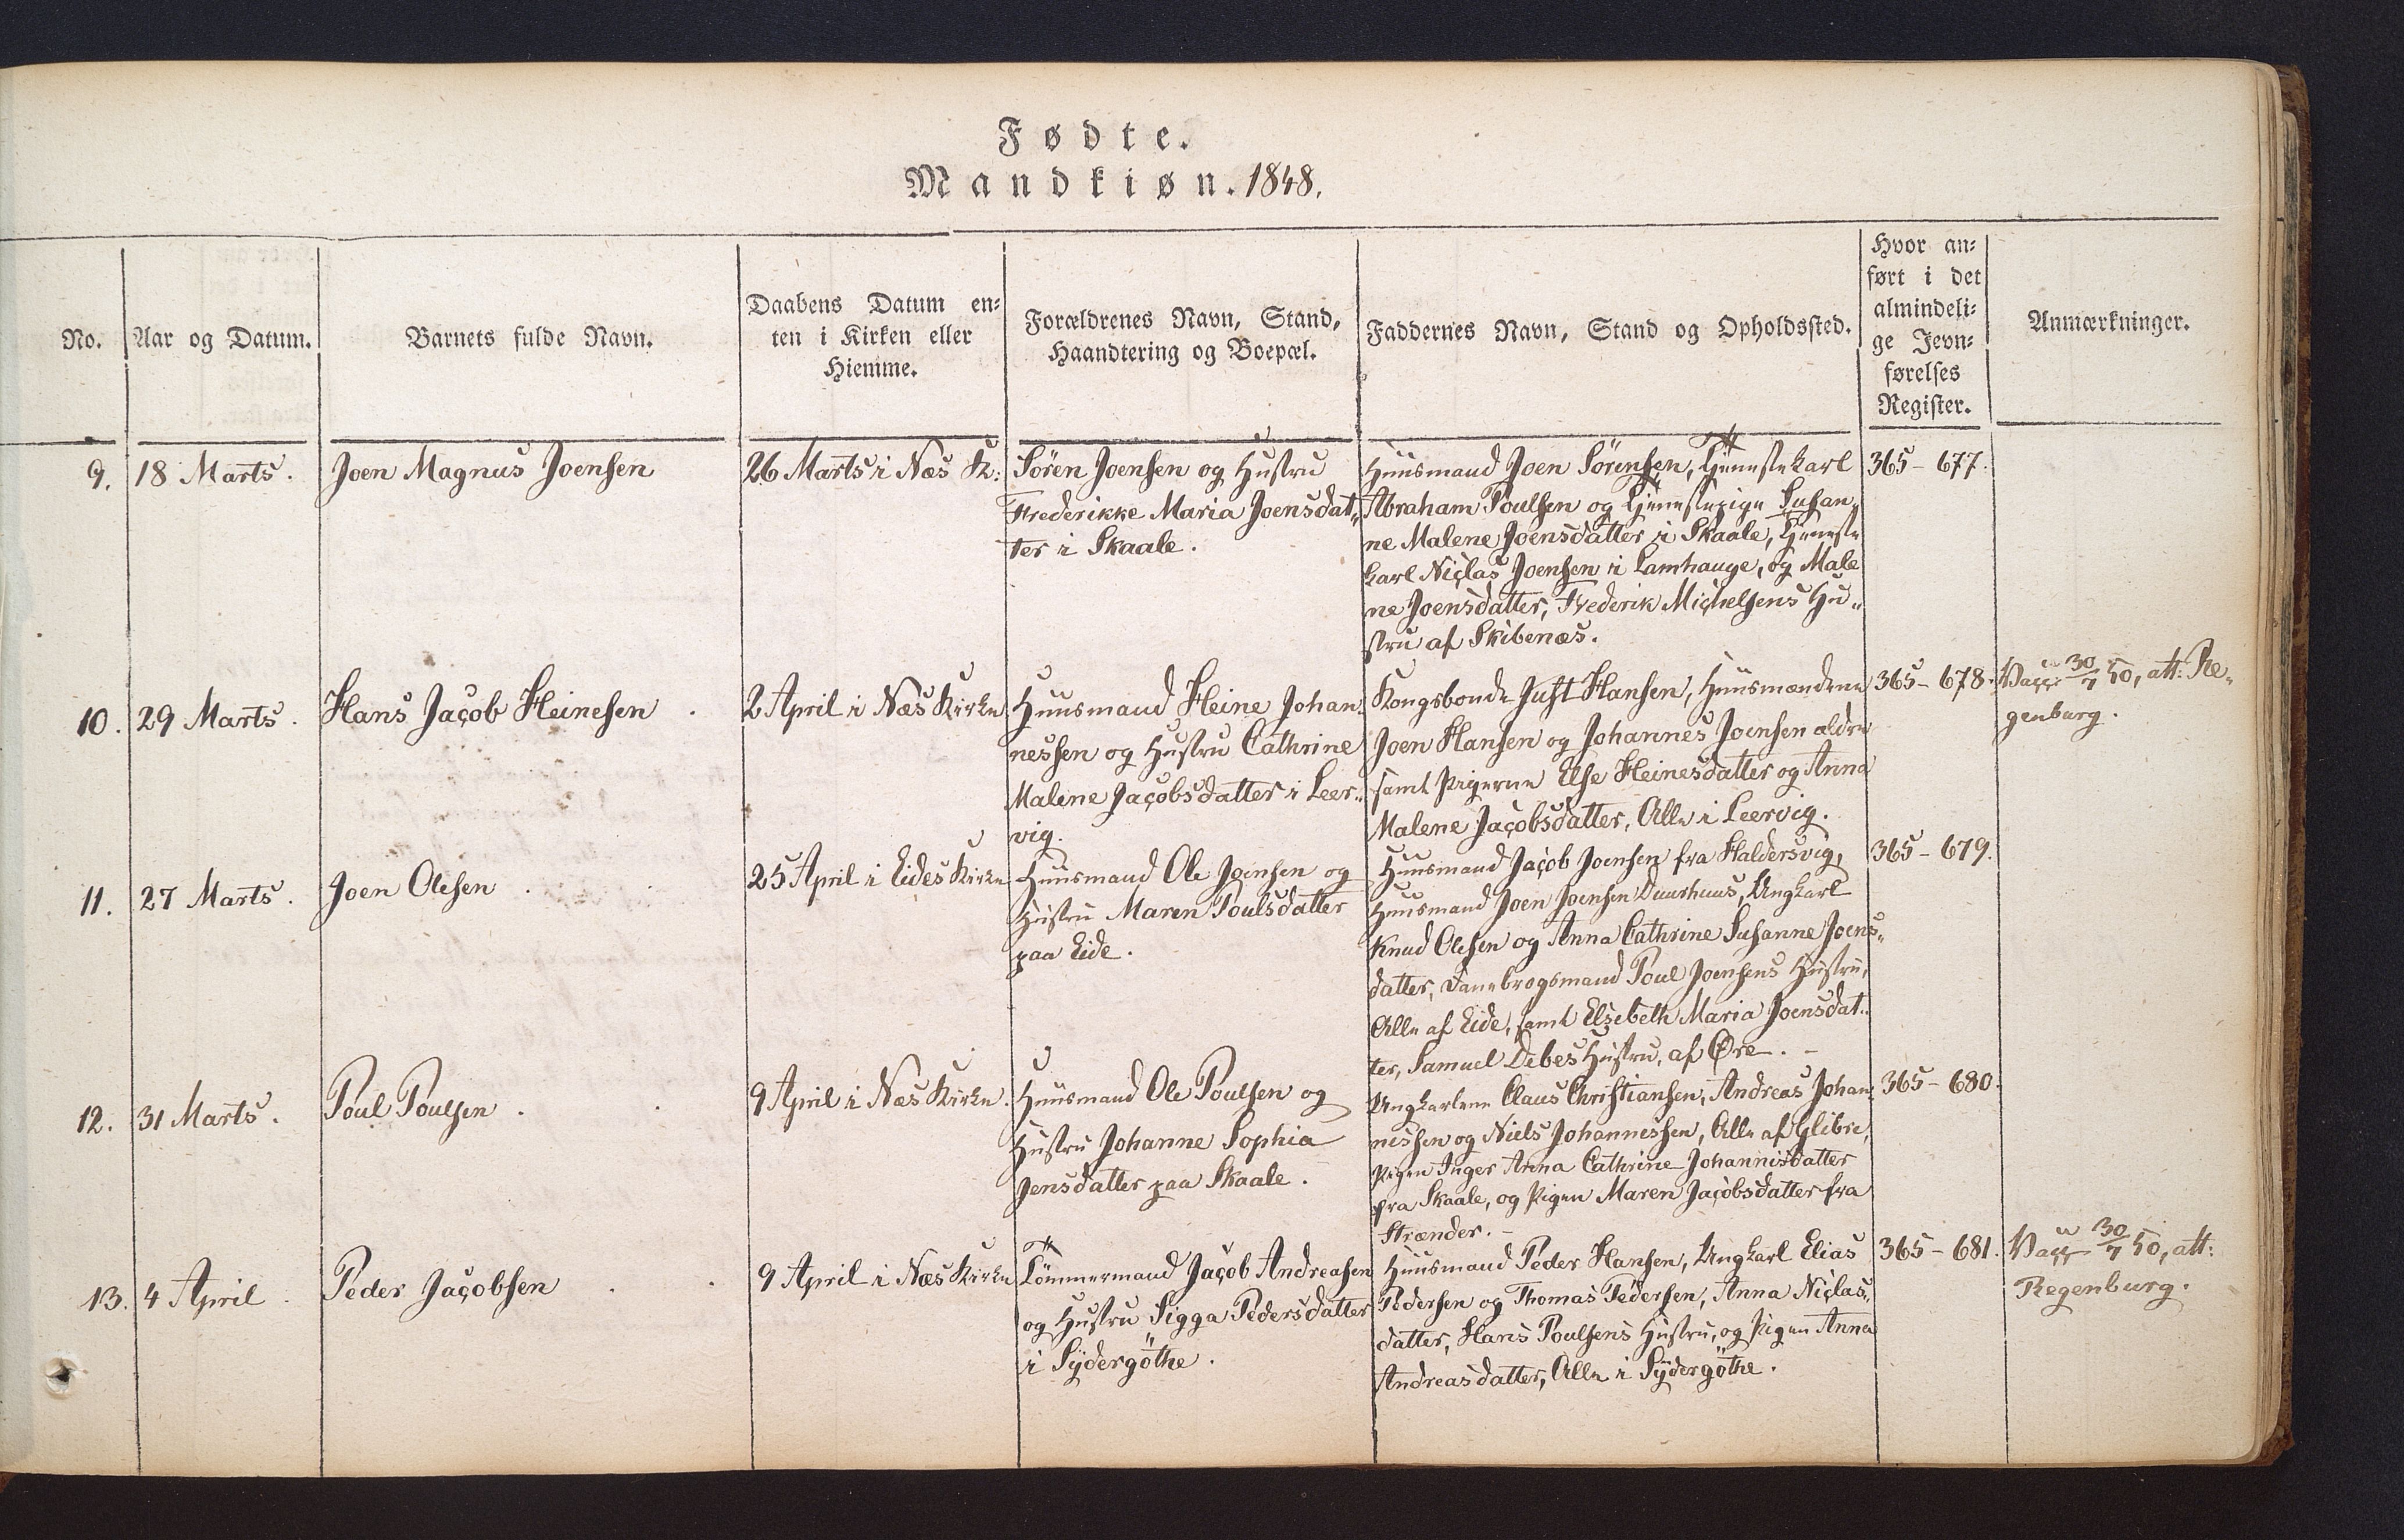 Fødte.
Mandkiøn. 1848.
No.
Aar og Datum.
Barnets fulde Navn.
Daabens Datum en-
ten i Kirken eller
Hiemme.
Forældrenes Navn, Stand,
Haandtering og Boepæl.
Faddernes Navn, Stand og Opholdssted.
Hvor an-
ført i det
almindeli-
ge Jevn-
førelses
Register.
Anmærkninger.
9.
18 Marts.
Joen Magnus Joensen
26 Marts i Næs K:
Sören Joensen og Hustru
Frederikke Maria Joensdat„
ter i Skaale.
Huusmand Joen Sörensen, Tjenestekarl
Abraham Poulsen og Tjenestepige Susan„
ne Malene Joensdatter i Skaale, Tjeneste
karl Niclas Joensen i Lamhauge, og Male
ne Joensdatter, Frederik Michelsens Hu„
stru af Skibenæs.
365 - 677.
10.
29 Marts.
Hans Jacob Heinesen
2 April i Næs Kirke
Huusmand Heine Johan„
nessen og Hustru Cathrine
Malene Jacobsdatter i Leer„
vig.
Kongsbonde Just Hansen, Huusmændene
Joen Hansen og Johannes Joensen ældre
samt Pigerne Else Heinesdatter og Anna
Malene Jacobsdatter, Alle i Leervig.
365 - 678.
Vacc: 30/7 50, att: Re„
genburg.
11.
27 Marts.
Joen Olesen
25 April i Eides Kirke
Huusmand Ole Joensen og
Hustru Maren Poulsdatter
paa Eide.
Huusmand Jacob Joensen fra Haldersvig,
Huusmand Joen Joensen Duurhuus, Ungkarl
Knud Olesen og Anna Cathrine Susanne Joens„
datter, Danebrogsmand Poul Joensens Hustru,
Alle af Eide, samt Elsebeth Maria Joensdat„
ter, Samuel Debes Hustru, af Øre. -
365 - 679.
12.
31 Marts.
Poul Poulsen.
9 April i Næs Kirke.
Huusmand Ole Poulsen og
Hustru Johanne Sophia
Jensdatter paa Skaale.
Ungkarlene Claus Christiansen, Andreas Johan„
nessen og Niels Johannessen, Alle af Glibre,
Pigen Inger Anna Cathrine Johannisdatter
fra Skaale, og Pigen Maren Jacobsdatter fra
Strænder. -
365 - 680.
13.
4 April
Peder Jacobsen
9 April i Næs Kirke
Tömmermand Jacob Andreasen
og Hustru Sigga Pedersdatter
i Sydergöthe.
Huusmand Peder Hansen, Ungkarl Elias
Pedersen og Thomas Pedersen, Anna Niclas„
datter, Hans Poulsens Hustru, og Pigen Anna
Andreasdatter, Alle i Sydergöthe.
365 - 681.
Vacc 30/7 50, att:
Regenburg.